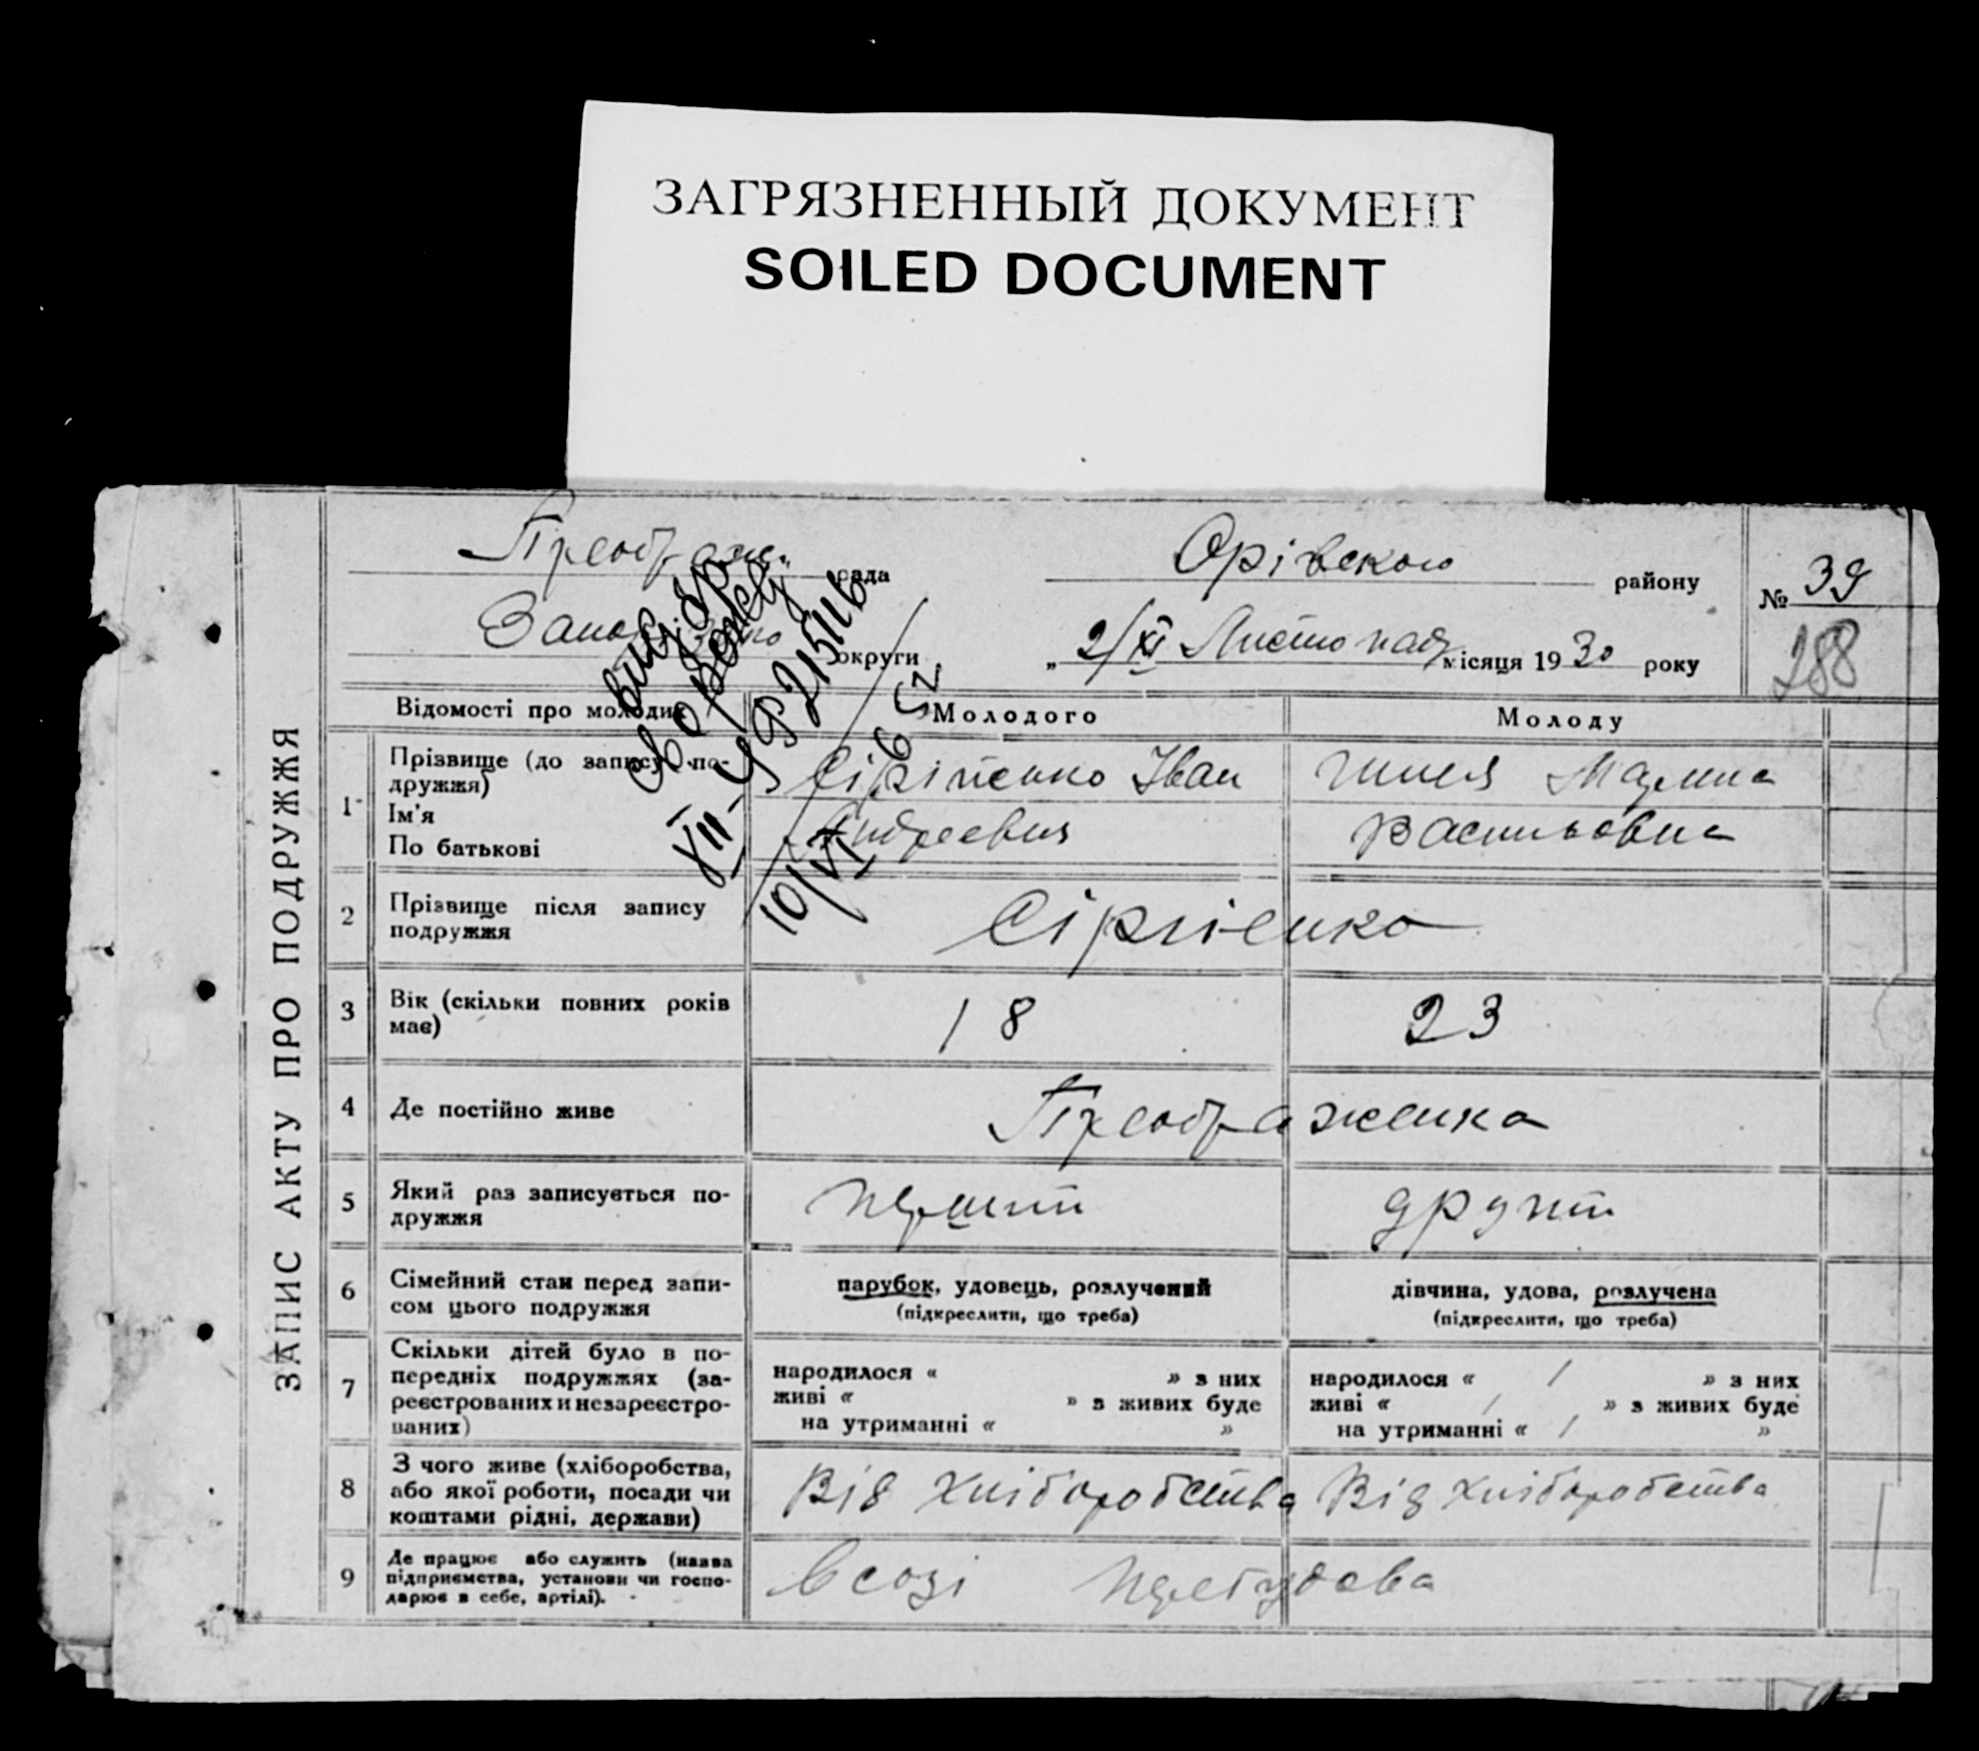 ЗАГРЯЗНЕННЫЙ ДОКУМЕНТ
SOILED DOCUMENT
ЗАПИС АКТУ ПРО ПОДРУЖЖЯ
Преображ. рада
Орівского району
№ 39
округи
„ 2/XI Листопад місяця 1930 року
288
Відомості про молодих
Молодого
Молоду
1
Прізвище (до запису по-
дружжя)
Ім'я
По батькові
Сірпенко Іван
Андреевич
Марина
Васильовна
видано
XII-
10/VI 52
2
Прізвище після запису
подружжя
Сірпенко
3
Вік (скільки повних років
має)
18
23
4
Де постійно живе
Преображенка
5
Який раз записується по-
дружжя
перший
другий
6
Сімейний стан перед запи-
сом цього подружжя
парубок, удовець, розлучений
(підкреслити, що треба)
дівчина, удова, розлучена
(підкреслити, що треба)
7
Скільки дітей було в по-
передніх подружжях (за-
реєстрованих и незареєстро-
ваних)
народилося « » з них
живі « » з живих буде
на утриманні « »
народилося « / » з них
живі « / » з живих буде
на утриманні « / »
8
З чого живе (хліборобства,
або якої роботи, посади чи
коштами рідні, держави)
Від хліборобства
Від хліборобства
9
Де працює або служить (назва
підприємства, установи чи госпо-
дарює в себе, артілі).
В созі Перебудова